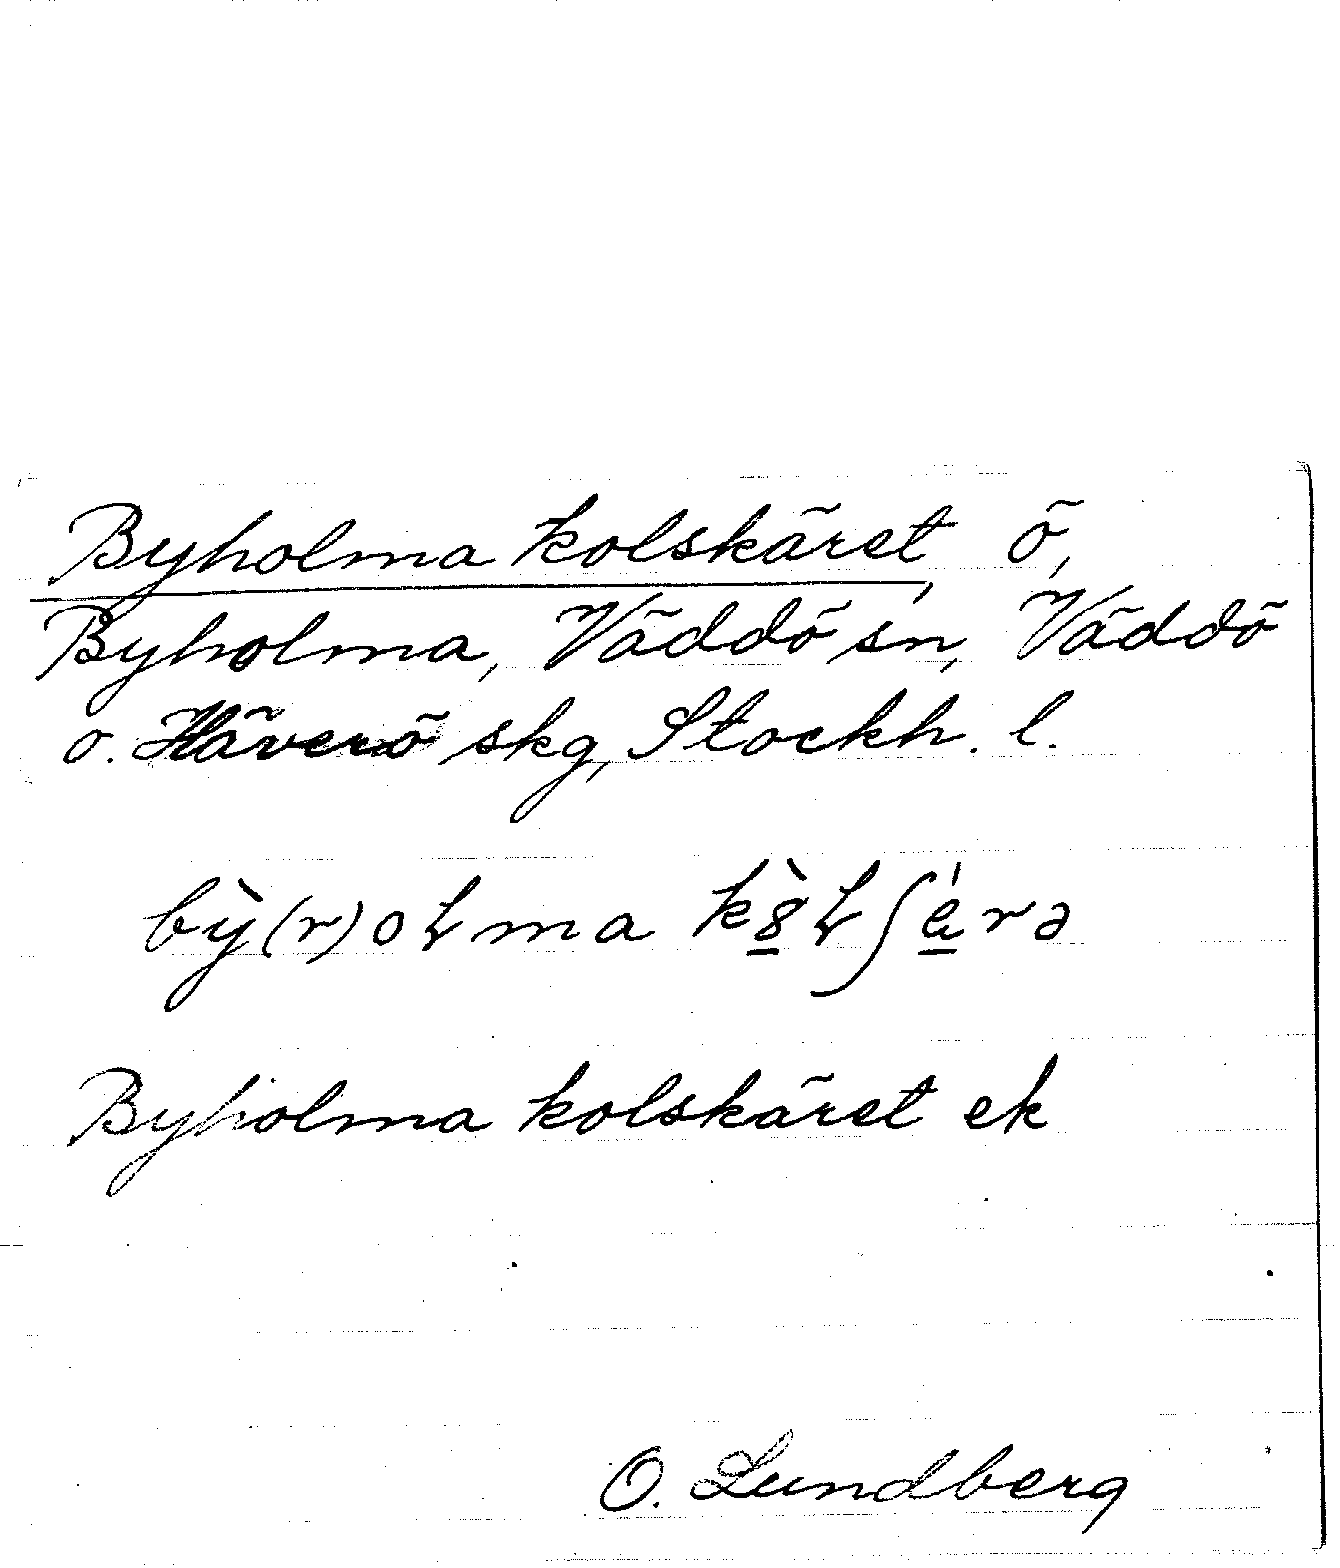 Byholma kolskäret, ö,
Byholma, Väddö sn, Väddö
o. Häverö skg, Stockh. l.
bỳ(r)oɫma kò̱ɫʃá̱rə
Byholma kolskäret ek
O. Lundberg